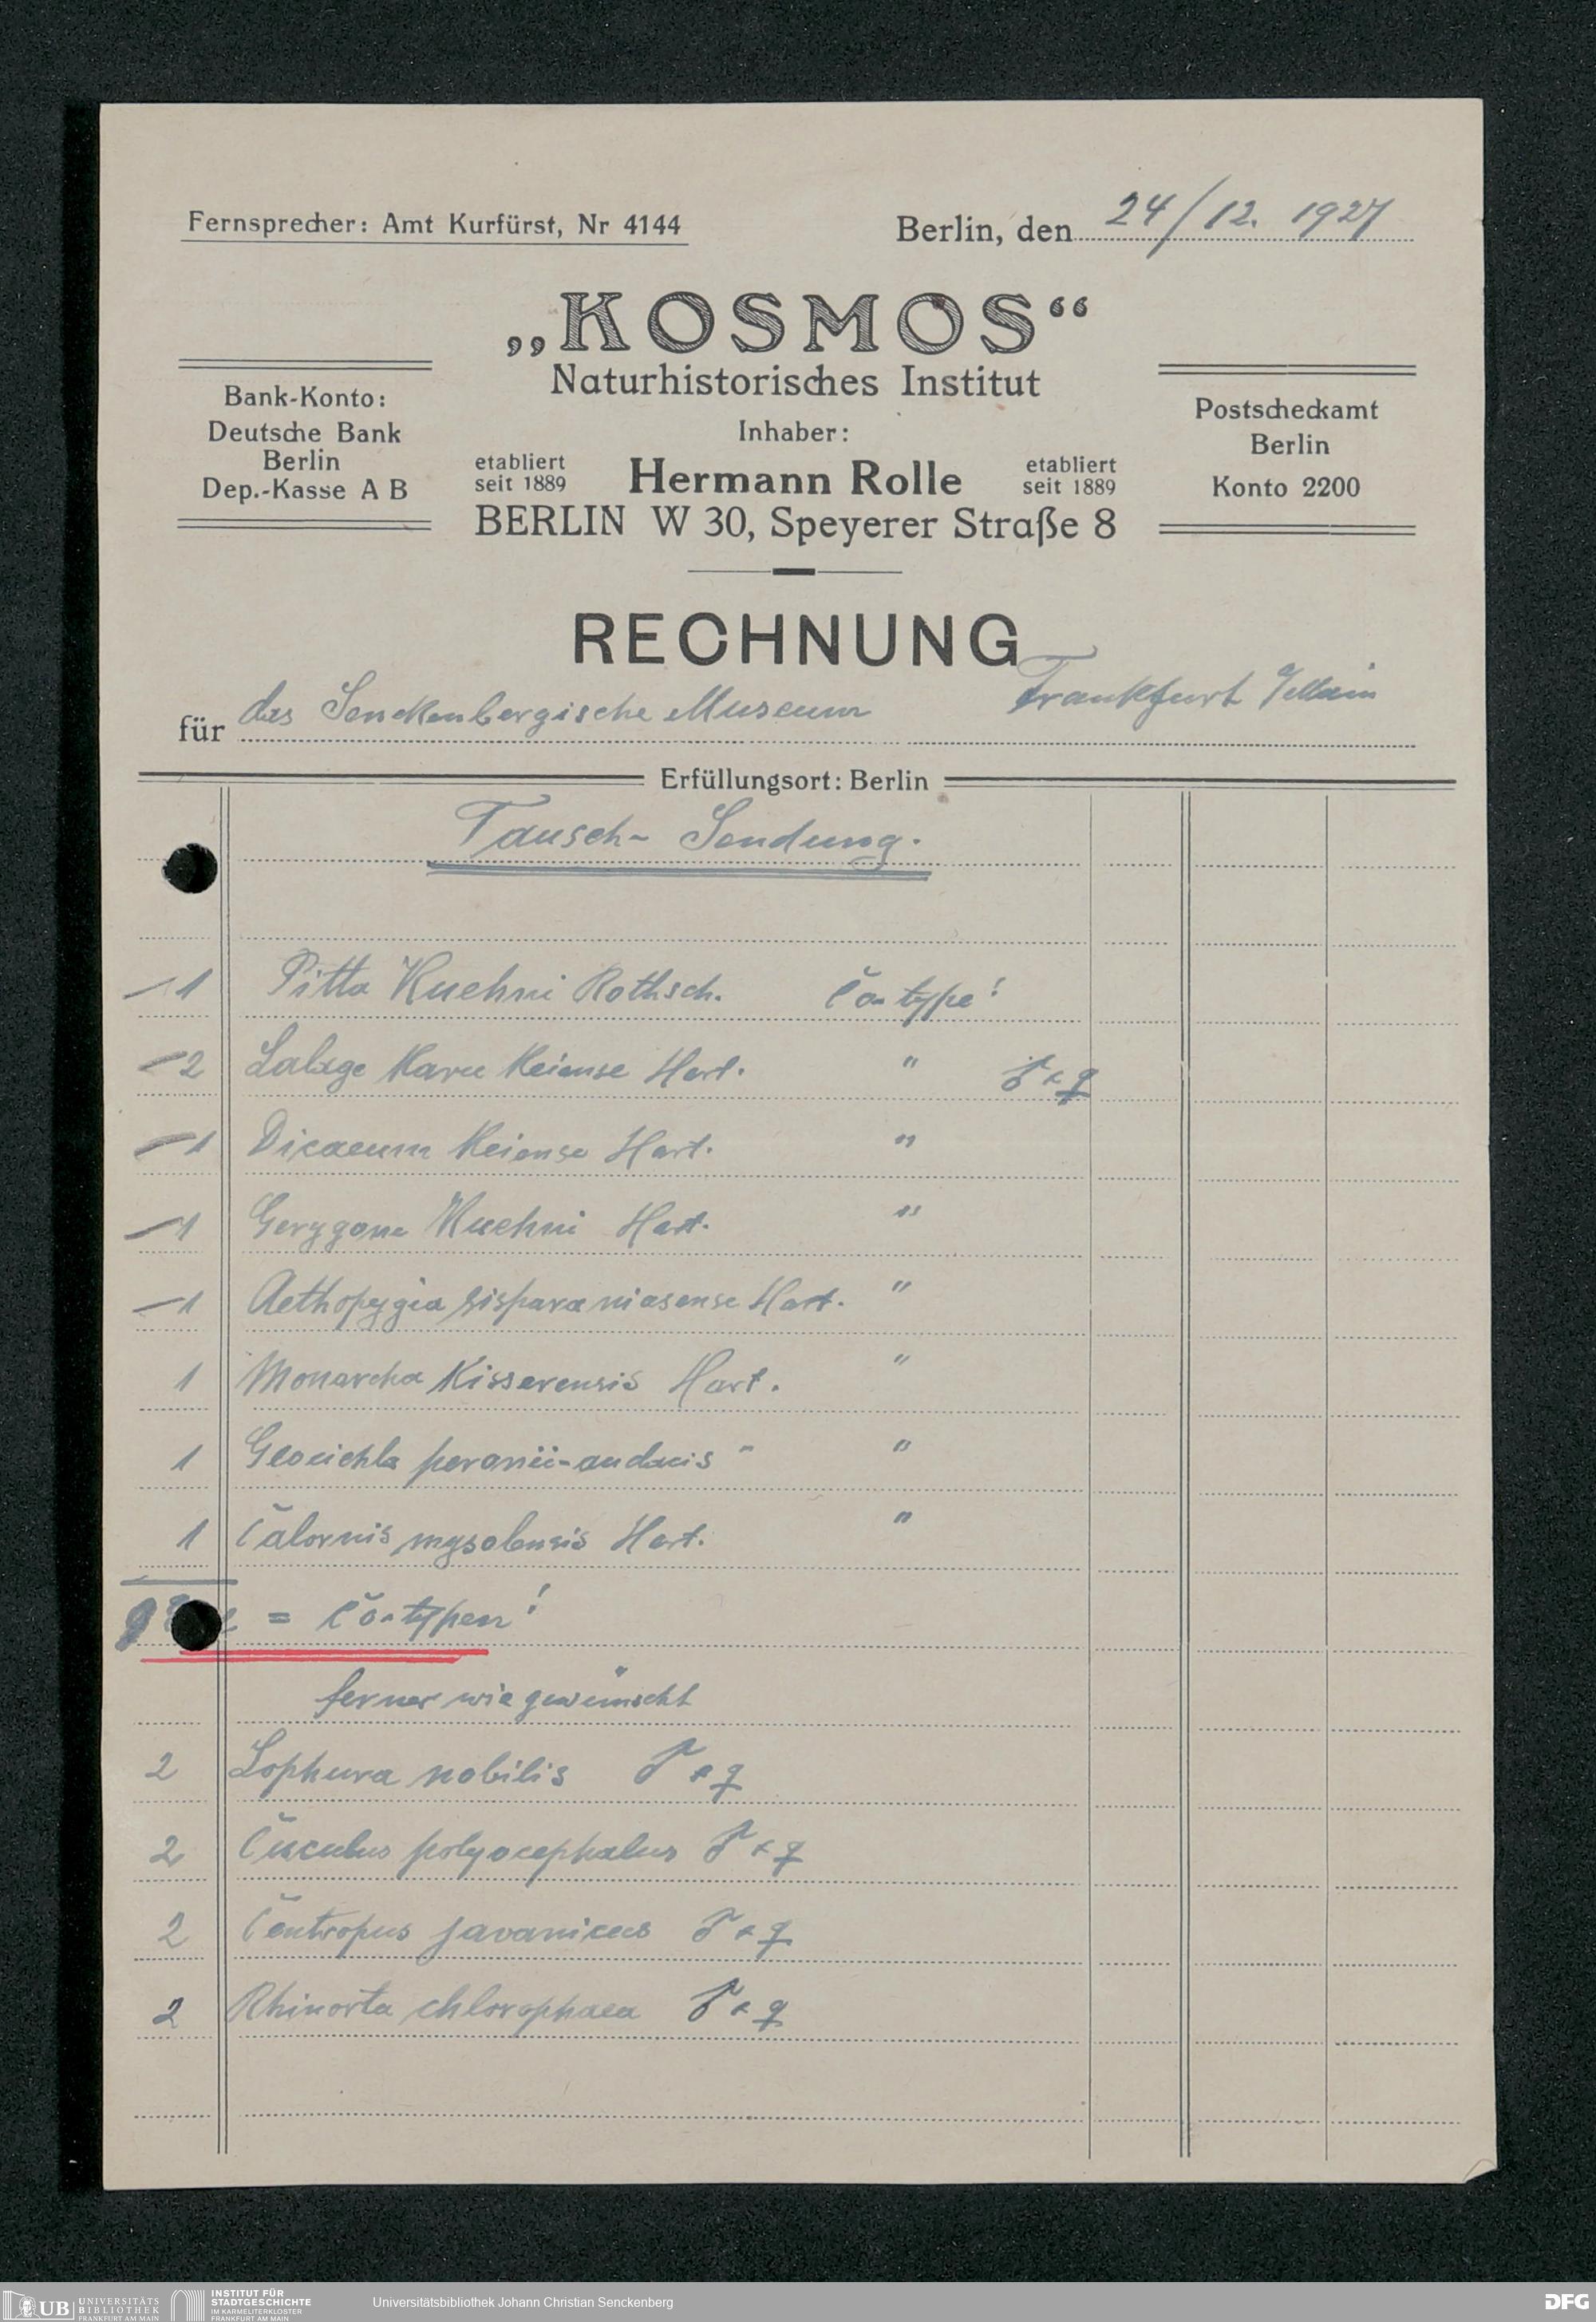 Fernsprecher: Amt Kurfürst, Nr 4144
Berlin, den 24/12. 1927
„KOSMOS“
Naturhistorisches Institut
Bank-Konto:
Deutsche Bank
Berlin
Dep.-Kasse A B
Inhaber:
etabliert seit 1889 Hermann Rolle etabliert seit 1889
BERLIN W 30, Speyerer Straße 8
Postscheckamt
Berlin
Konto 2200
RECHNUNG
für das Senckenbergische Museum Frankfurt /Main
Erfüllungsort: Berlin
Tausch- Sendung.
1 Pitta Kuehni Rothsch. Co-type!
2 Lalage Karu Keiense Hart. " ♂ + ♀
1 Dicaeum Keiense Hart. "
1 Gerygone Kuehni Hart. "
1 Aethopygia siparaja niasense Hart. "
1 Monarcha Kisserensis Hart. "
1 Geocichla peronii-audacis " "
1 Calornis mysolensis Hart. "
9 = Co-typen!
ferner wie gewünscht
2 Lophura nobilis ♂ + ♀
2 Cuculus polyocephalus ♂ + ♀
2 Centropus javanicus ♂ + ♀
2 Rhinorta chlorophaea ♂ + ♀
UB UNIVERSITÄTS BIBLIOTHEK FRANKFURT AM MAIN
INSTITUT FÜR STADTGESCHICHTE IM KARMELITERKLOSTER FRANKFURT AM MAIN
Universitätsbibliothek Johann Christian Senckenberg
DFG